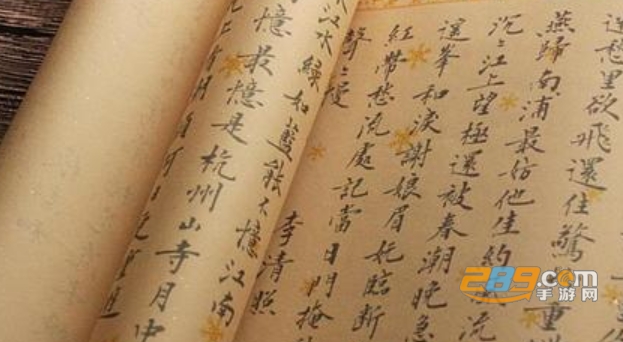 迷愁里欲飛還住驚 重
燕歸南浦最妨他佳約 流
沉〻江上望極還被春潮晚急
遥峯和淚謝娘眉嫵臨斷
紅帶愁流處記當日門掩
聲〻慢
李清照
江水綠如藍能不憶江南
憶最憶是杭州山寺月中
289.com
手游网